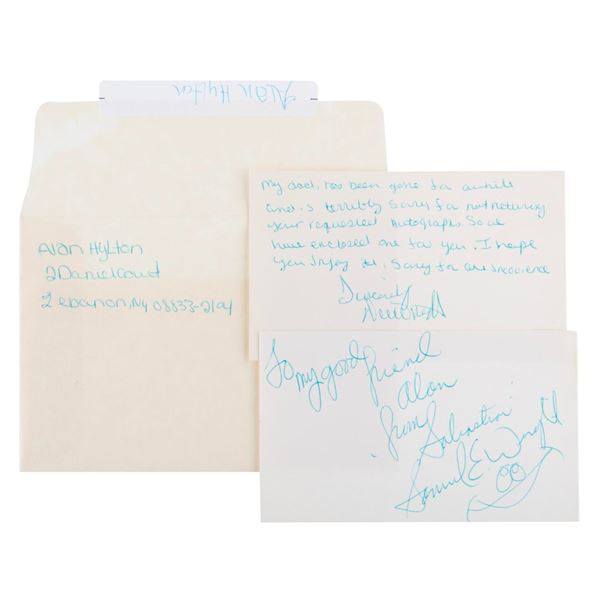 Alan Hylton
Alan Hylton
2 Daniel Court
Lebanon, NJ 08833-2194
My dad, has been gone for awhile
and is terribly sorry for not returning
your requested Autographs. So we
have enclosed one for you. I hope
you Injoy it. Sorry for our
Sincerely
To my good friend
Alan
from
Sabastian
Samuel E. Wright